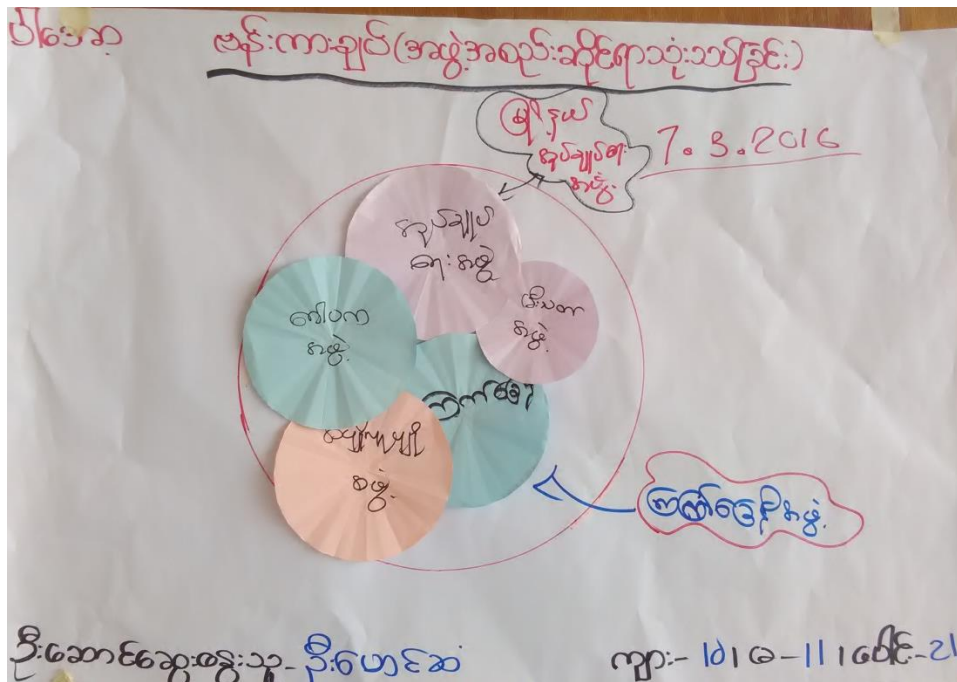 ဗန်းကားချပ်(အဖွဲ့အစည်းဆိုင်ရာသုံးသပ်ခြင်း)
မြို့နယ်
အုပ်ချုပ်ရေး
အဖွဲ့
7.3.2016
အုပ်ချုပ်
ရေးအဖွဲ့
မီးသတ်
အဖွဲ့
ဂေါပက
အဖွဲ့
ကြက်ခြေနီ
အဖွဲ့
ကြက်ခြေနီအဖွဲ့
ဦးဆောင်ဆွေးနွေးသူ-ဦးဟောင်ဆံ
ကျား-10၊ မ-11၊ ပေါင်း-21